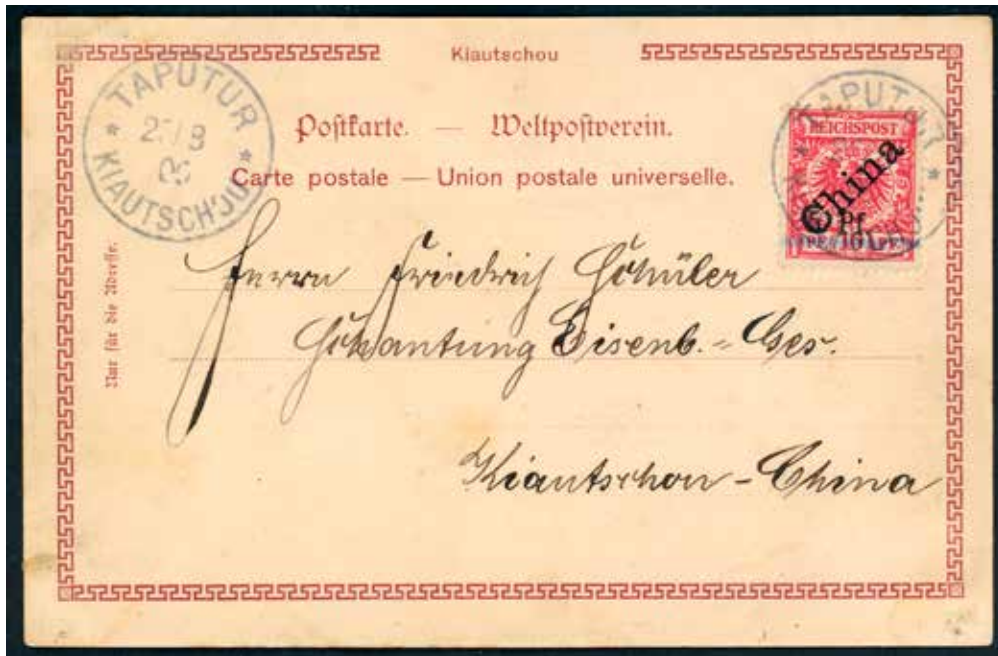 Kiautschou
TAPUTUR
KIAUTSCHOU
Postkarte. — Weltpostverein.
Carte postale — Union postale universelle.
REICHSPOST
China
5 Pf.
TAPUTUR
Nur für die Adresse.
Herrn Friedrich Schüler
Schantung Eisenb.-Ges.
Kiautschou - China